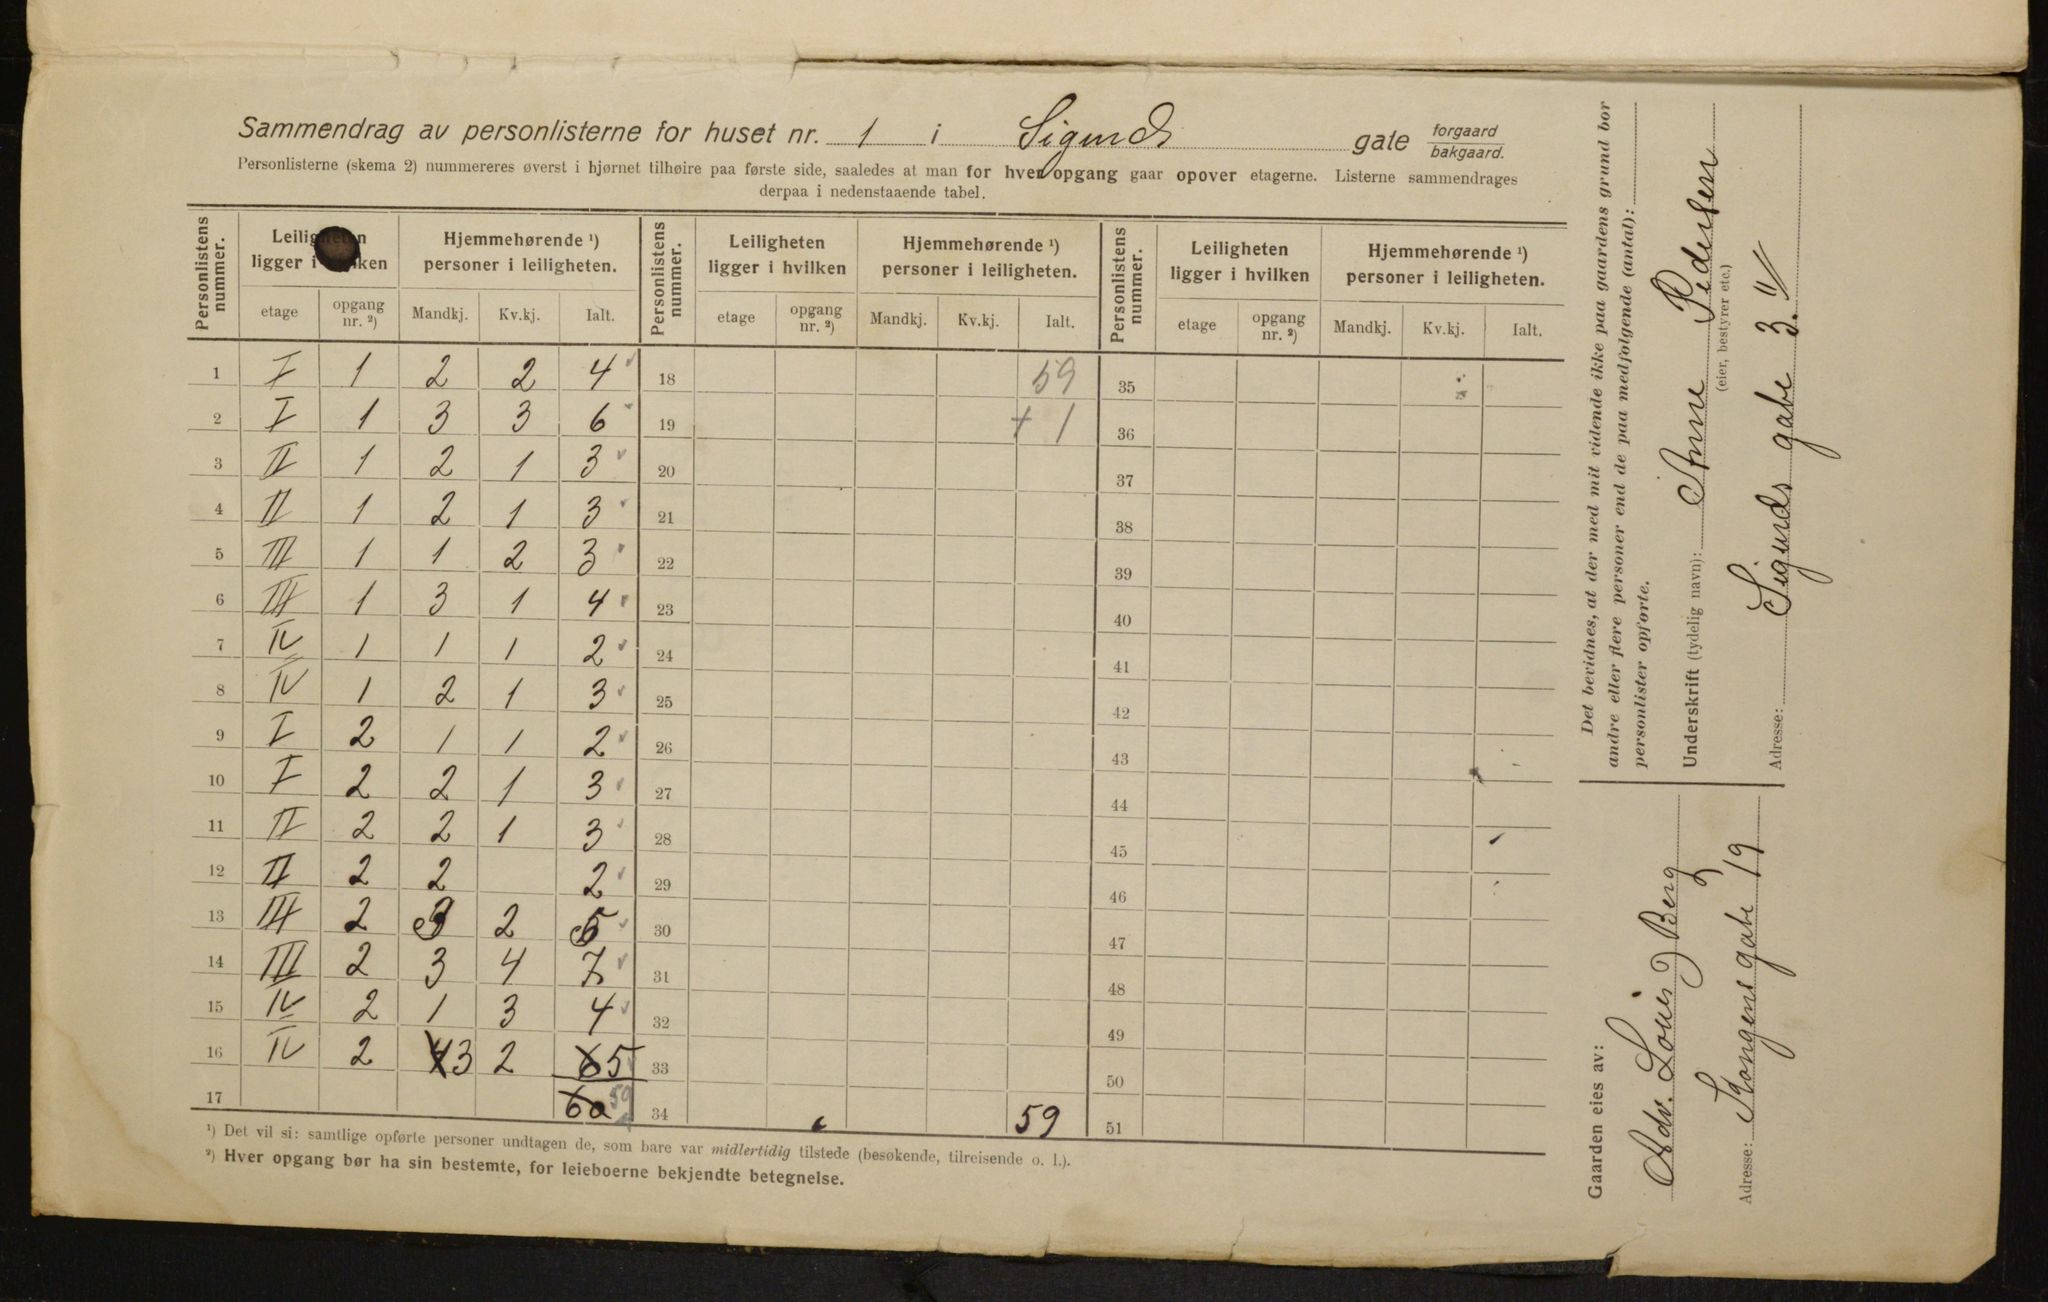 Sammendrag av personlisterne for huset nr. 1 i Sigurds gate forgaard bakgaard.
Personlisterne (skema 2) nummereres øverst i hjørnet tilhøire paa første side, saaledes at man for hver opgang gaar opover etagerne. Listerne sammendrages
derpaa i nedenstaaende tabel.
Personlistens nummer. Leiligheten ligger i hvilken Hjemmehørende ¹) personer i leiligheten. Personlistens nummer. Leiligheten ligger i hvilken Hjemmehørende ¹) personer i leiligheten. Personlistens nummer. Leiligheten ligger i hvilken Hjemmehørende ¹) personer i leiligheten.
etage opgang nr. ²) Mandkj. Kv.kj. Ialt. etage opgang nr. ²) Mandkj. Kv.kj. Ialt. etage opgang nr. ²) Mandkj. Kv.kj. Ialt.
1 I 1 2 2 4 18 59 35
2 I 1 3 3 6 19 + 1 36
3 II 1 2 1 3 20 37
4 II 1 2 1 3 21 38
5 III 1 1 2 3 22 39
6 III 1 3 1 4 23 40
7 IV 1 1 1 2 24 41
8 IV 1 2 1 3 25 42
9 I 2 1 1 2 26 43
10 I 2 2 1 3 27 44
11 II 2 2 1 3 28 45
12 II 2 2 2 29 46
13 III 2 3 2 5 30 47
14 III 2 3 4 7 31 48
15 IV 2 1 3 4 32 49
16 IV 2 4 3 2 6 5 33 50
17 60 59 34 59 51
¹) Det vil si: samtlige opførte personer undtagen de, som bare var midlertidig tilstede (besøkende, tilreisende o. l.).
²) Hver opgang bør ha sin bestemte, for leieboerne bekjendte betegnelse.
Det bevidnes, at der med mit vidende ikke paa gaardens grund bor
andre eller flere personer end de paa medfølgende (antal):
personlister opførte.
Underskrift (tydelig navn): Anne Pedersen
(eier, bestyrer etc.)
Adresse: Sigurds gate 3. II
Gaarden eies av:
Adv. Louis Berg
Adresse: Kongens gate 19